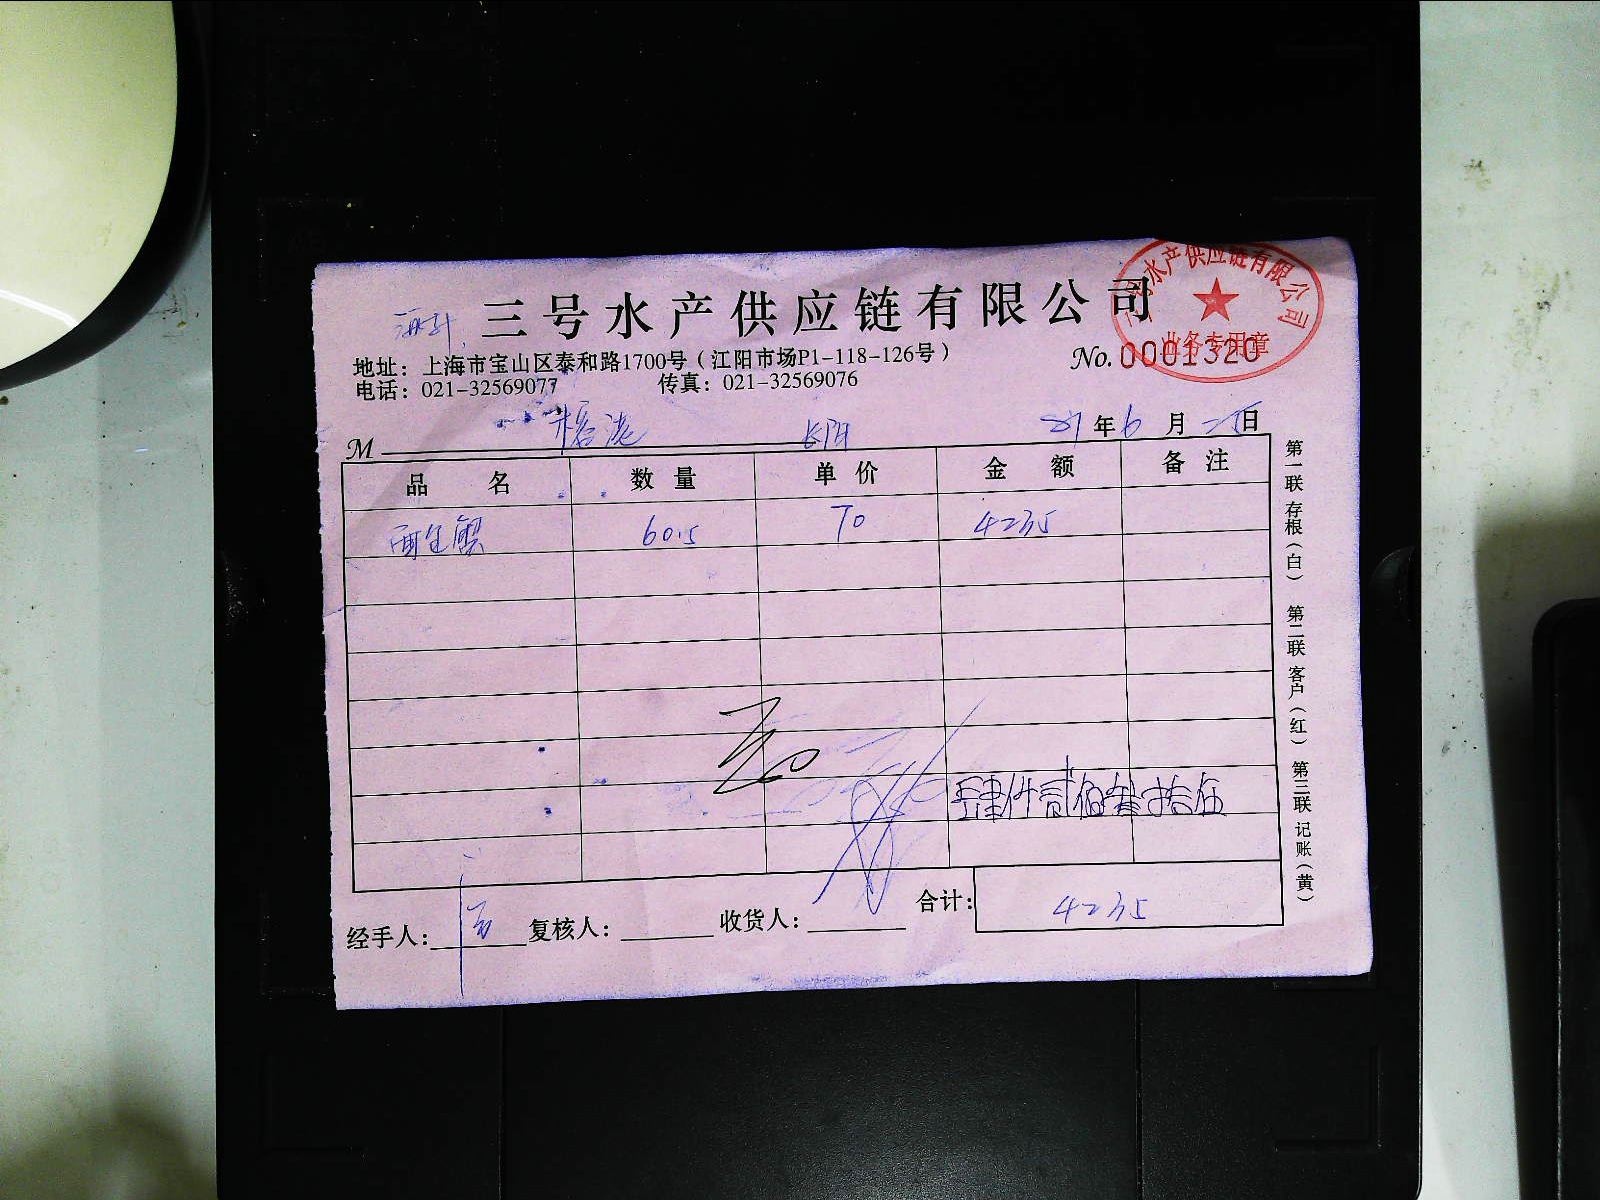 三号水产供应链有限公司
三号水产供应链有限公司
业务专用章
地址：上海市宝山区泰和路1700号（江阳市场P1-118-126号）
No. 0001320
电话：021-32569077 传真：021-32569076
M 榕港 长阳 21年6月25日
品名 数量 单价 金额 备注
面包蟹 60.5 70 4235
肆仟贰佰叁拾伍
合计：4235
经手人： 复核人： 收货人：
第一联 存根（白） 第二联 客户（红） 第三联 记账（黄）